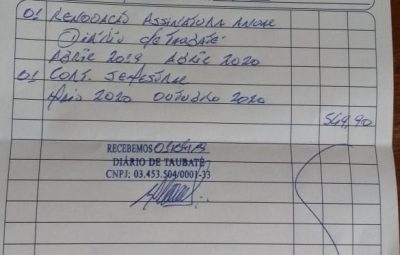 01 RENOVAÇÃO ASSINATURA ANUAL
DIÁRIO DE TAUBATÉ
ABRIL 2019 ABRIL 2020
01 CORT. SEMESTRAL
MAIO 2020 OUTUBRO 2020
549,90
RECEBEMOS
DIÁRIO DE TAUBATÉ
CNPJ: 03.453.504/0001-33